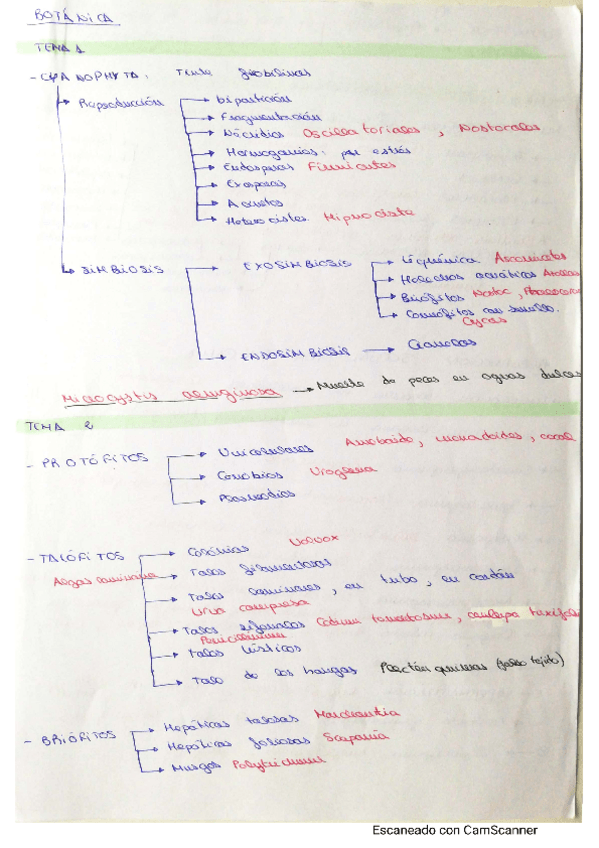 BOTÁNICA
TEMA 1
- CYANOPHYTA: Tienen ficobilinas
Reproducción → bipartición
→ Fragmentación
→ Necridios Oscillatoriales, Nostocales
→ Hormogonios: por estrés
→ Endosporas Firmicutes
→ Exosporas
→ Acinetos
→ Heterocistes.
SIMBIOSIS → EXOSIMBIOSIS → Liquénica Ascomicetes
→ Helechos acuáticos Azolla
→ Briófitos Nostoc,
→ Cormófitos con semilla.
Cycas
→ ENDOSIMBIOSIS → Cianelas
Microcystis aeruginosa → Muerte de peces en aguas dulces
TEMA 2
- PROTÓFITOS → Unicelulares Ameboide, monadoides, cocal
→ Cenobios
→ Plasmodios
- TALÓFITOS → Colonias Volvox
Algas laminaria → Talos filamentosos
→ Talos laminares, en tubo, en cordón
Ulva compresa
→ Talos sifonados Codium tomentosum, caulerpa taxifolia
→ Talos
→ Talo de los hongos Plecténquimas (falso tejido)
- BRIÓFITOS → Hepáticas talosas Marchantia
→ Hepáticas foliosas Scapania
→ Musgos Polytrichum
Escaneado con CamScanner